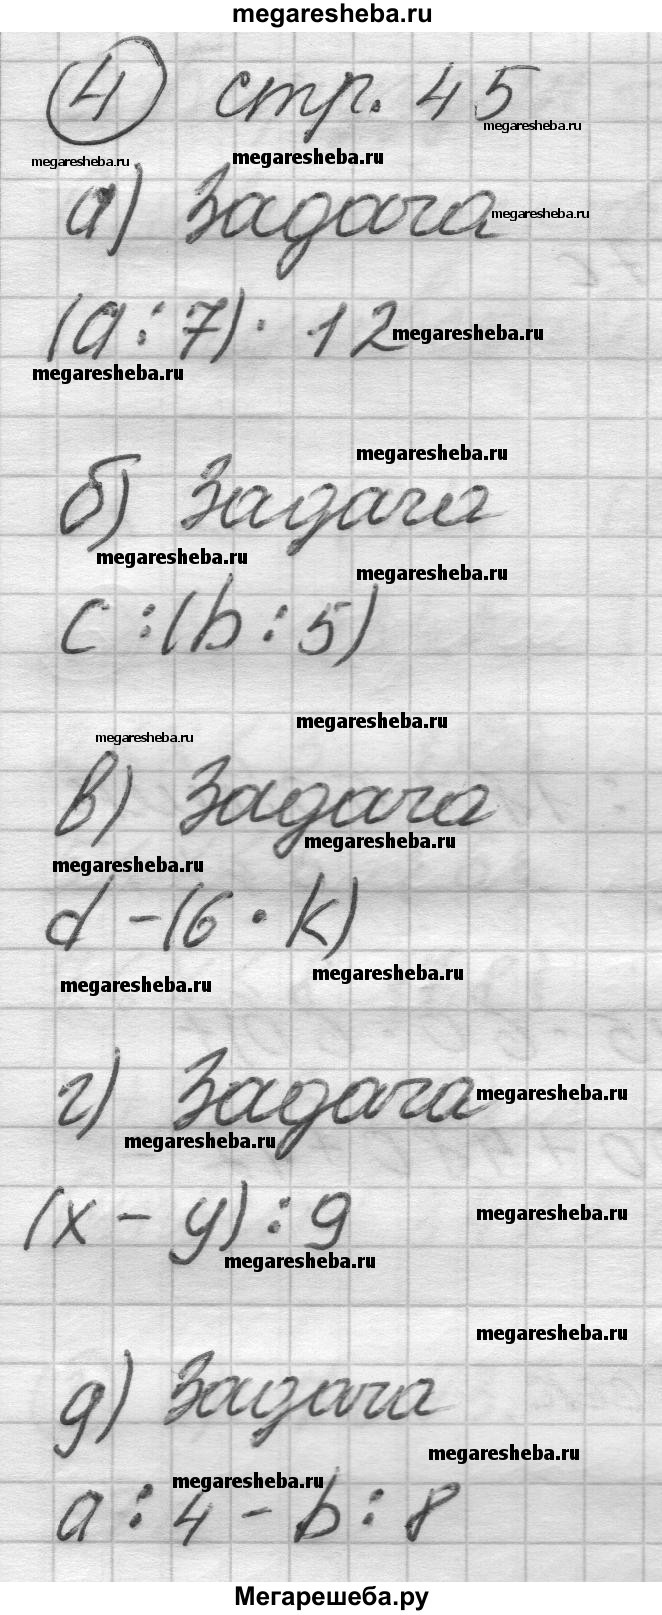 megaresheba.ru
4 стр. 45
megaresheba.ru
megaresheba.ru
megaresheba.ru
а) Задача
megaresheba.ru
(a : 7) · 12
megaresheba.ru
megaresheba.ru
megaresheba.ru
б) Задача
megaresheba.ru
megaresheba.ru
c : (b : 5)
megaresheba.ru
megaresheba.ru
в) Задача
megaresheba.ru
megaresheba.ru
d - (6 · k)
megaresheba.ru
megaresheba.ru
г) Задача
megaresheba.ru
megaresheba.ru
(x - y) : 9
megaresheba.ru
megaresheba.ru
megaresheba.ru
д) Задача
megaresheba.ru
megaresheba.ru
a : 4 - b : 8
Мегарешеба.ру